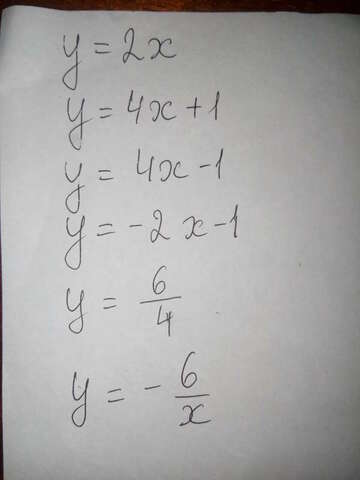 y = 2x
y = 4x + 1
y = 4x - 1
y = - 2x - 1
y = 6/4
y = - 6/x